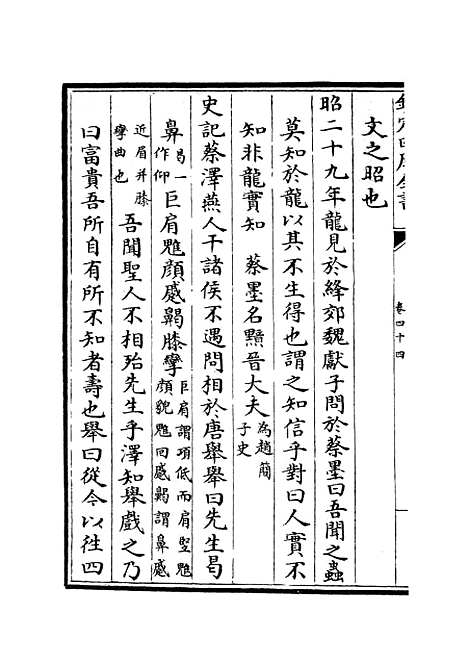 文之昭也
昭二十九年龍見於絳郊魏獻子問於蔡墨曰吾聞之蟲
莫知於龍以其不生得也謂之知信乎對曰人實不
知非龍實知　蔡墨名黯晉大夫為趙簡子史
史記蔡澤燕人干諸侯不遇問相於唐舉舉曰先生曷
鼻曷一作仰巨肩魋顔蹙齃膝攣巨肩謂項低而肩豎魋顔貌魋回蹙齃謂鼻蹙
近眉并膝攣曲也吾聞聖人不相殆先生乎澤知舉戲之乃
曰富貴吾所自有所不知者壽也舉曰從今以徃四
卷四十四